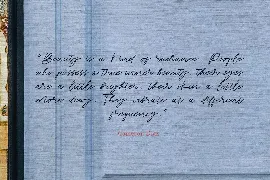 "Beauty is a kind of radiance. People
who possess a true inner beauty, their eyes
are a little brighter, their skin a little
more dewy. They vibrate at a different
frequency."